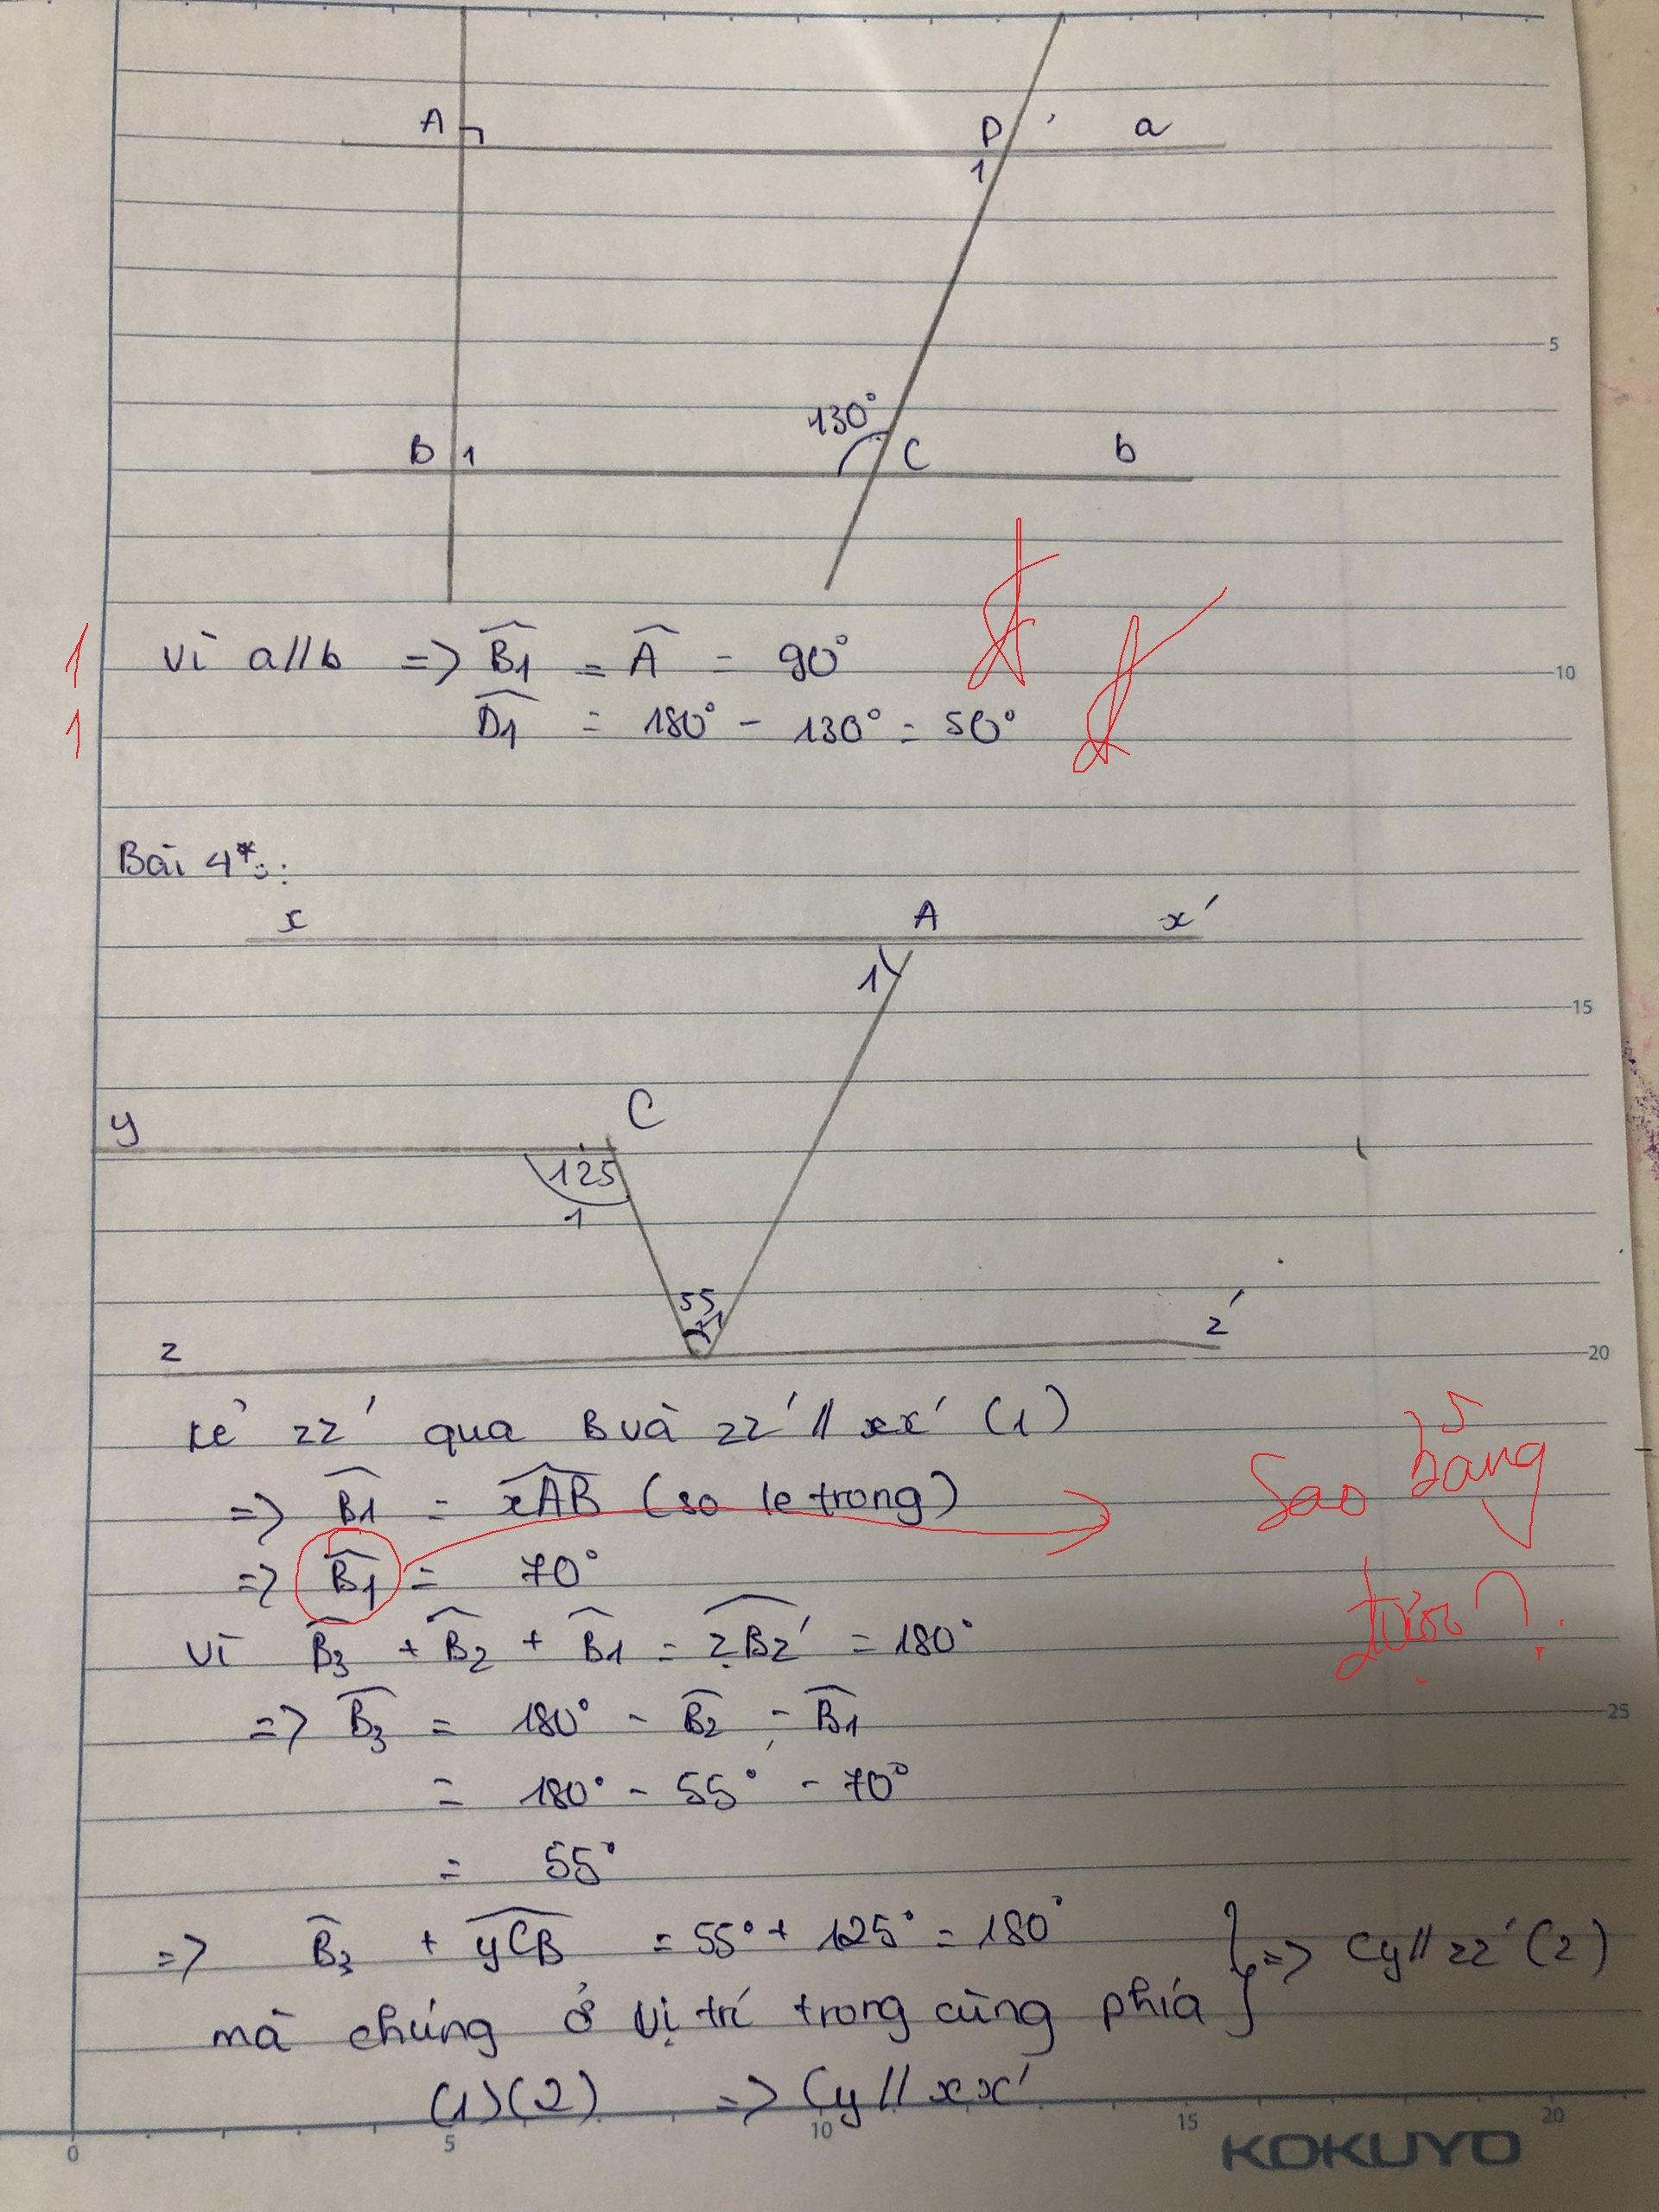 A
D
a
1
5
130°
B 1
C
b
1 Vì a//b => B1 = A = 90° Đ
10
1 D1 = 180° - 130° = 50° Đ
Bài 4*:
x
A
x'
1
15
C
y
125
1
55
1
z
z'
20
Kẻ zz' qua B và zz' // xx' (1)
=> B1 = xAB (so le trong)
Sao bằng
=> B1 = 70°
được?
Vì B3 + B2 + B1 = zBz' = 180°
=> B3 = 180° - B2 - B1
25
= 180° - 55° - 70°
= 55°
=> B3 + yCB = 55° + 125° = 180° } => Cy // zz' (2)
mà chúng ở vị trí trong cùng phía
(1)(2) => Cy // xx'
0 5 10 15 20
KOKUYO